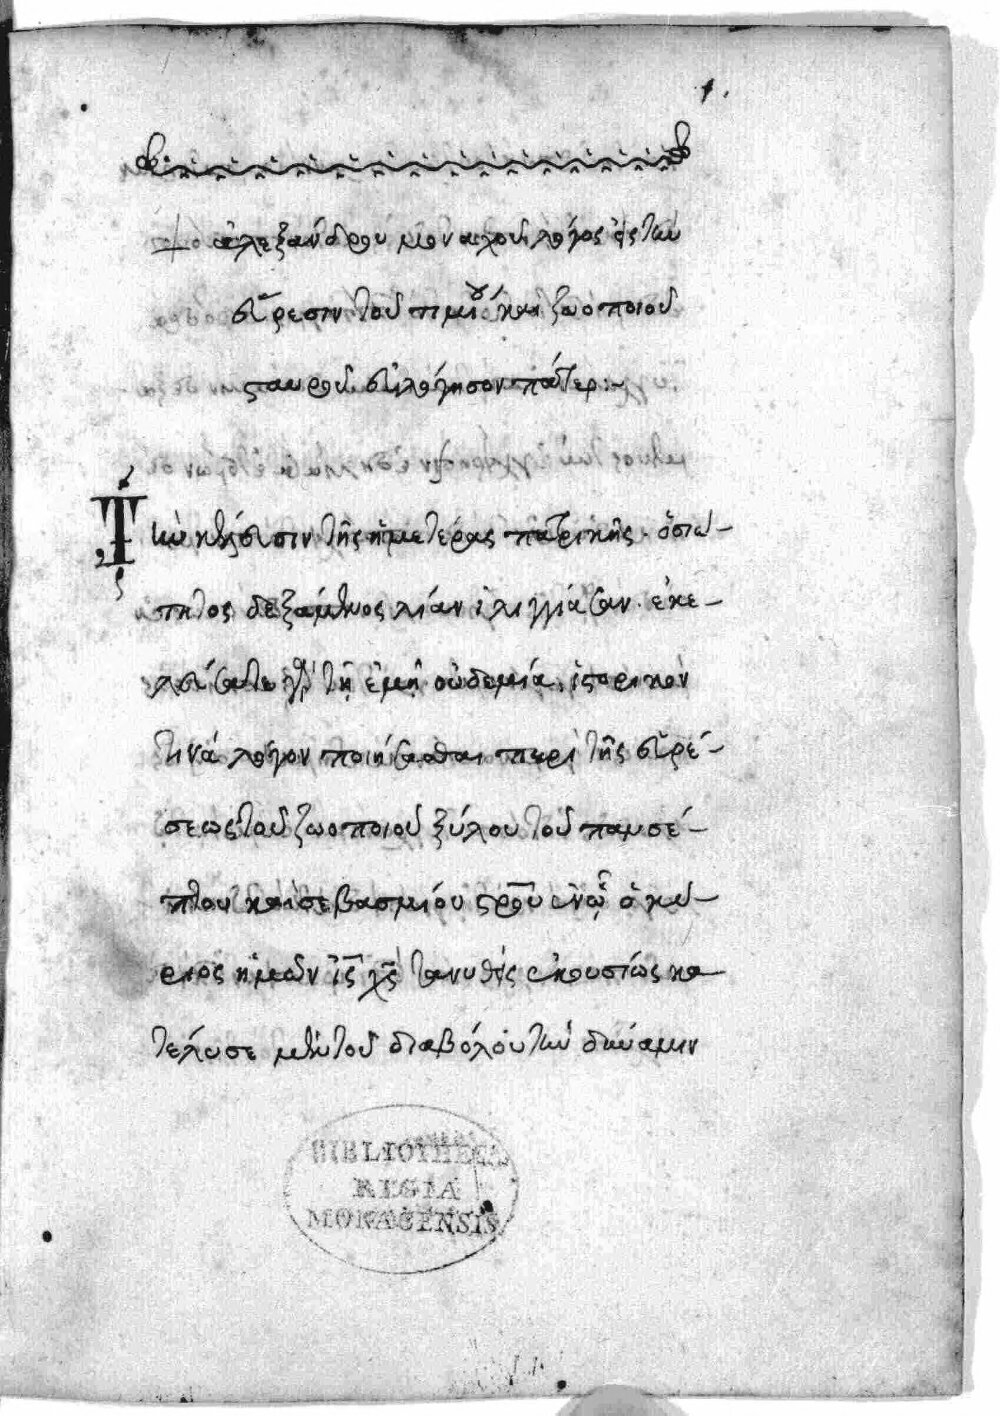 1.
+ ἀλεξάνδρου μοναχοῦ λόγος εἰς τὴν
εὕρεσιν τοῦ τιμίου καὶ ζωοποιοῦ
σταυροῦ εὐλόγησον πάτερ:~
Τὴν κέλευσιν τῆς ἡμετέρας πατρικῆς ὁσιω-
τητος δεξάμενος λίαν ἰλιγγίασαν. ἐκε-
λεύσατε γὰρ τῇ ἐμῇ οὐδεμία, ἱστορικὸν
τινὰ λόγον ποιήσασθαι περὶ τῆς εὑρέ-
σεως τοῦ ζωοποιοῦ ξύλου τοῦ πανσέ-
πτου καὶ σεβασμίου σρου ἐν ᾧ ὁ κύ-
ριος ἡμῶν ις χς τανυθεὶς ἑκουσίως κα
τέλυσε μὲν τοῦ διαβόλου τὴν δύναμιν
BIBLIOTHECA
REGIA
MONACENSIS